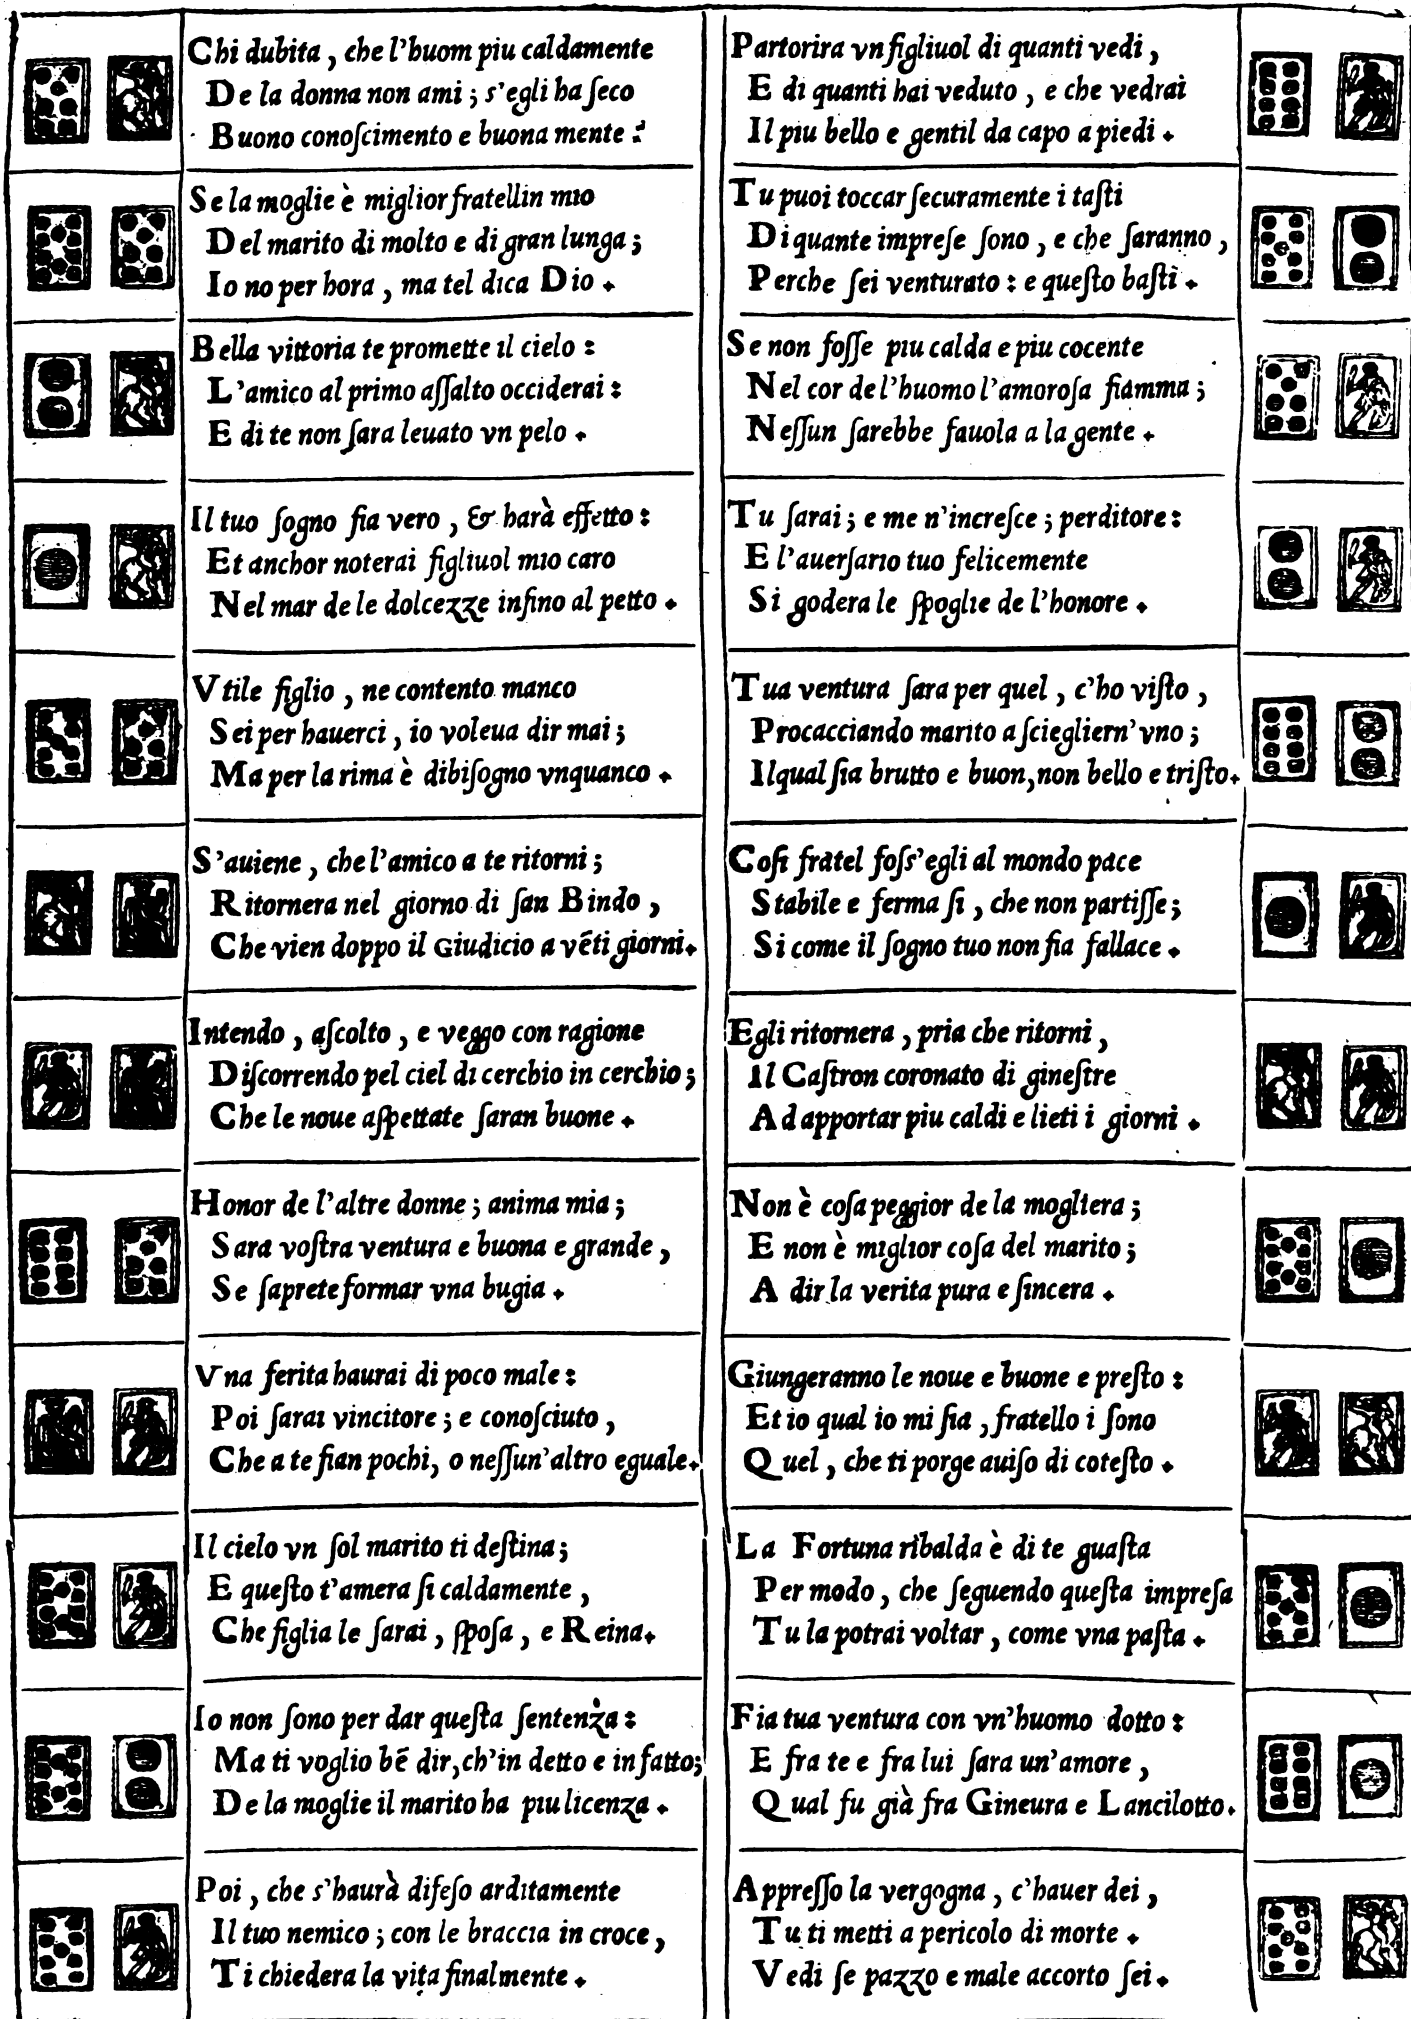 Chi dubita, che l'huom piu caldamente
De la donna non ami; s'egli ha ſeco
Buono conoſcimento e buona mente:
Se la moglie è miglior fratellin mio
Del marito di molto e di gran lunga;
Io no per hora, ma tel dica Dio.
Bella vittoria te promette il cielo:
L'amico al primo aſſalto occiderai:
E di te non ſara leuato vn pelo.
Il tuo ſogno fia vero, & harà effetto:
Et anchor noterai figliuol mio caro
Nel mar de le dolcezze infino al petto.
Vtile figlio, ne contento manco
Sei per hauerci, io voleua dir mai;
Ma per la rima è dibiſogno vnquanco.
S'auiene, che l'amico a te ritorni;
Ritornera nel giorno di ſan Bindo,
Che vien doppo il Giudicio a vēti giorni.
Intendo, aſcolto, e veggo con ragione
Diſcorrendo pel ciel di cerchio in cerchio;
Che le noue aſpettate ſaran buone.
Honor de l'altre donne; anima mia;
Sara voſtra ventura e buona e grande,
Se ſaprete formar vna bugia.
Vna ferita haurai di poco male:
Poi ſarai vincitore; e conoſciuto,
Che a te fian pochi, o neſſun'altro eguale.
Il cielo vn ſol marito ti deſtina;
E queſto t'amera ſi caldamente,
Che figlia le ſarai, ſpoſa, e Reina.
Io non ſono per dar queſta ſentenza:
Ma ti voglio bē dir, ch'in detto e in fatto;
De la moglie il marito ha piu licenza.
Poi, che s'haurà difeſo arditamente
Il tuo nemico; con le braccia in croce,
Ti chiedera la vita finalmente.
Partorira vn figliuol di quanti vedi,
E di quanti hai veduto, e che vedrai
Il piu bello e gentil da capo a piedi.
Tu puoi toccar ſecuramente i taſti
Di quante impreſe ſono, e che ſaranno,
Perche ſei venturato: e queſto baſti.
Se non foſſe piu calda e piu cocente
Nel cor de l'huomo l'amoroſa fiamma;
Neſſun ſarebbe fauola a la gente.
Tu ſarai; e me n'increſce; perditore:
E l'auerſario tuo felicemente
Si godera le ſpoglie de l'honore.
Tua ventura ſara per quel, c'ho viſto,
Procacciando marito a ſciegliern'vno;
Ilqual ſia brutto e buon, non bello e triſto.
Coſi fratel foſs'egli al mondo pace
Stabile e ferma ſi, che non partiſſe;
Si come il ſogno tuo non fia fallace.
Egli ritornera, pria che ritorni,
Il Caſtron coronato di gineſtre
Ad apportar piu caldi e lieti i giorni.
Non è coſa peggior de la mogliera;
E non è miglior coſa del marito;
A dir la verita pura e ſincera.
Giungeranno le noue e buone e preſto:
Et io qual io mi ſia, fratello i ſono
Quel, che ti porge auiſo di coteſto.
La Fortuna ribalda è di te guaſta
Per modo, che ſeguendo queſta impreſa
Tu la potrai voltar, come vna paſta.
Fia tua ventura con vn'huomo dotto:
E fra te e fra lui ſara un'amore,
Qual fu già fra Gineura e Lancilotto.
Appreſſo la vergogna, c'hauer dei,
Tu ti metti a pericolo di morte.
Vedi ſe pazzo e male accorto ſei.